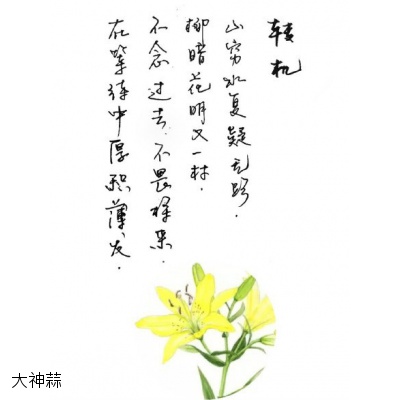 转机
山穷水复疑无路.
柳暗花明又一村.
不念过去.不畏将来.
在等待中厚积薄发.
大神蒜